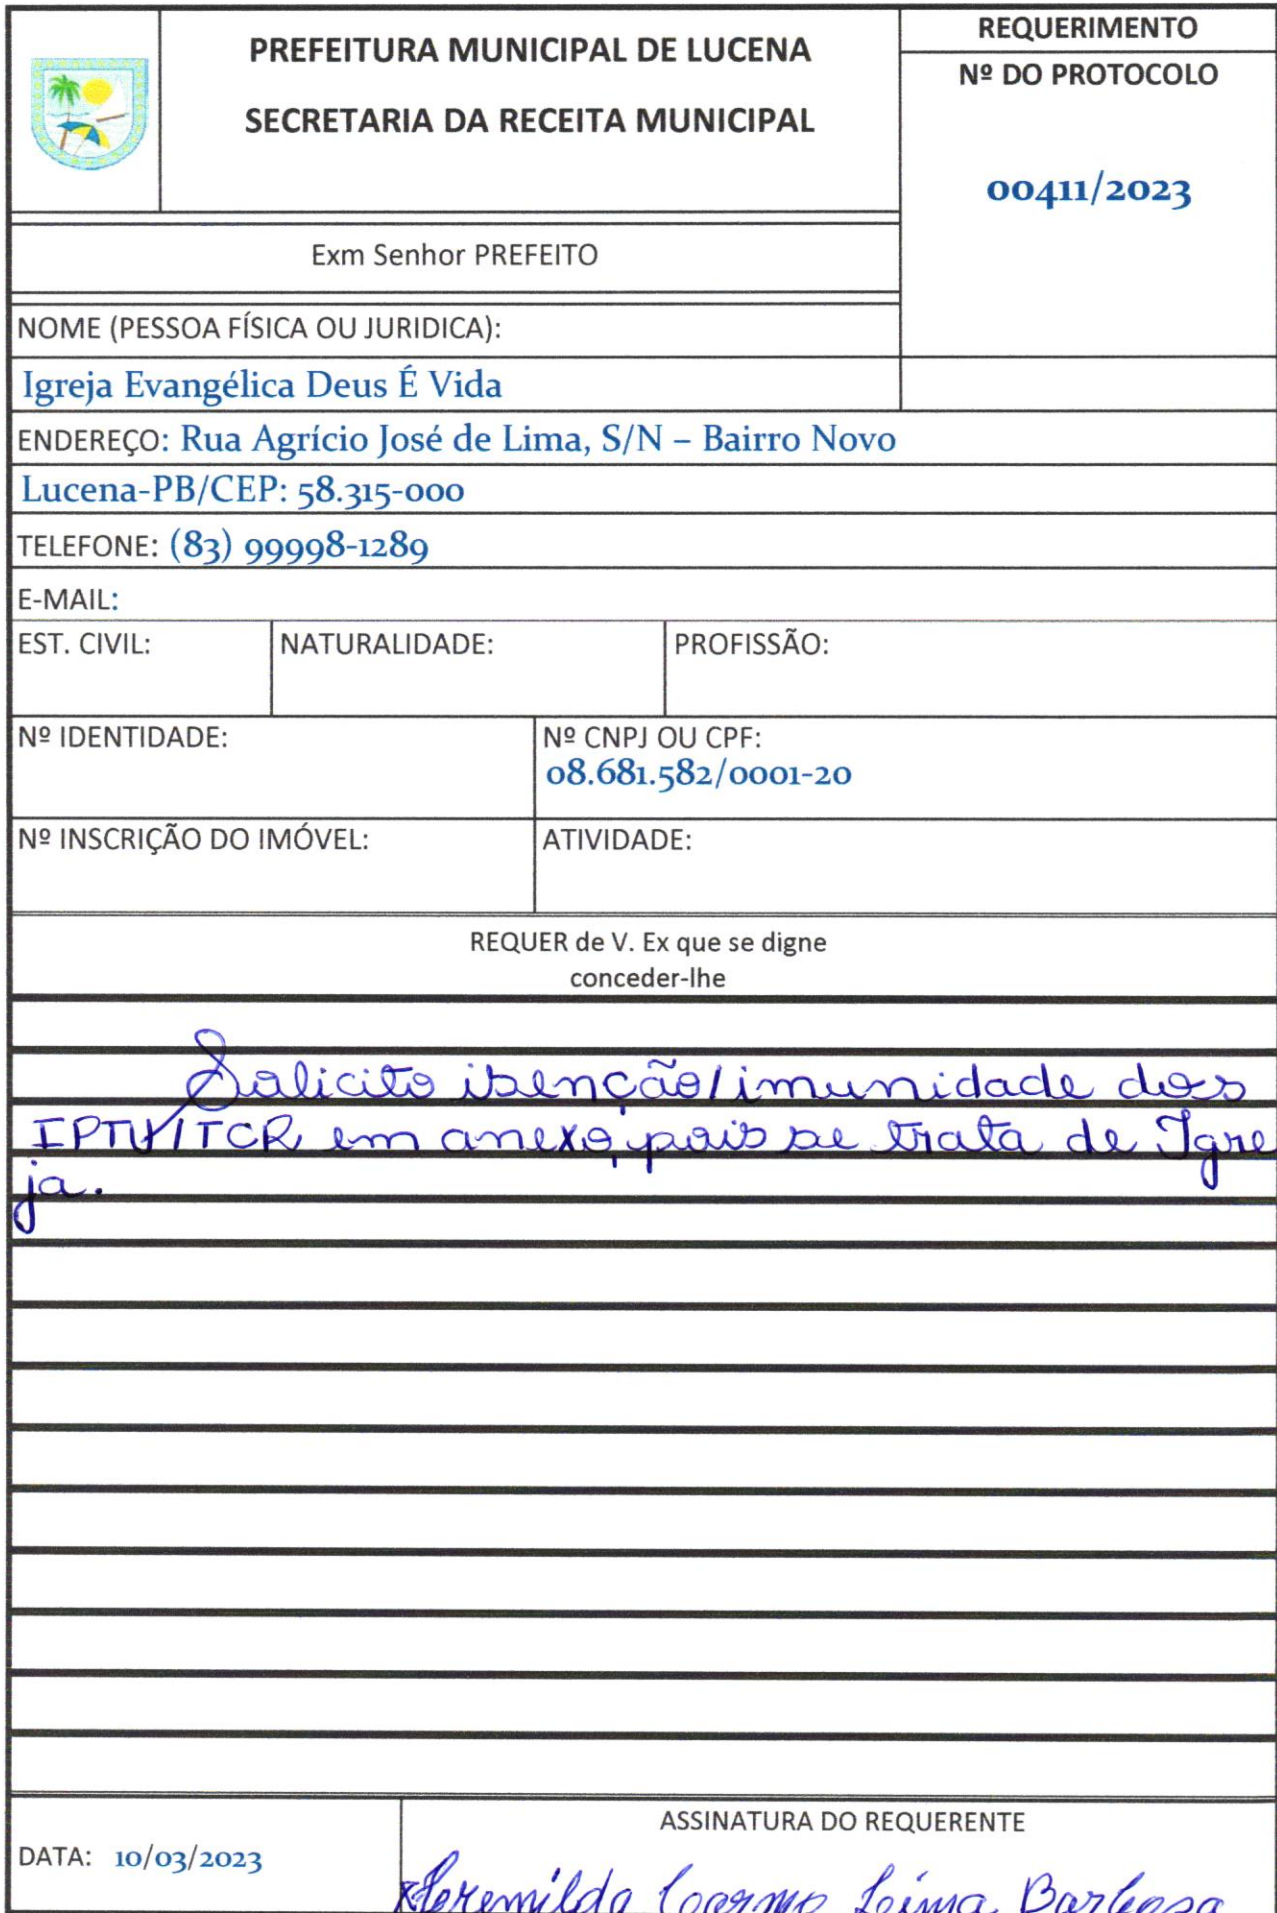 PREFEITURA MUNICIPAL DE LUCENA
SECRETARIA DA RECEITA MUNICIPAL
REQUERIMENTO
Nº DO PROTOCOLO
00411/2023
Exm Senhor PREFEITO
NOME (PESSOA FÍSICA OU JURIDICA):
Igreja Evangélica Deus É Vida
ENDEREÇO: Rua Agrício José de Lima, S/N – Bairro Novo
Lucena-PB/CEP: 58.315-000
TELEFONE: (83) 99998-1289
E-MAIL:
EST. CIVIL: NATURALIDADE: PROFISSÃO:
Nº IDENTIDADE: Nº CNPJ OU CPF:
08.681.582/0001-20
Nº INSCRIÇÃO DO IMÓVEL: ATIVIDADE:
REQUER de V. Ex que se digne
conceder-lhe
Solicito isenção/imunidade dos
IPTU/TCR em anexo, pois se trata de Igre
ja.
ASSINATURA DO REQUERENTE
DATA: 10/03/2023
Carmo Leima Barbosa